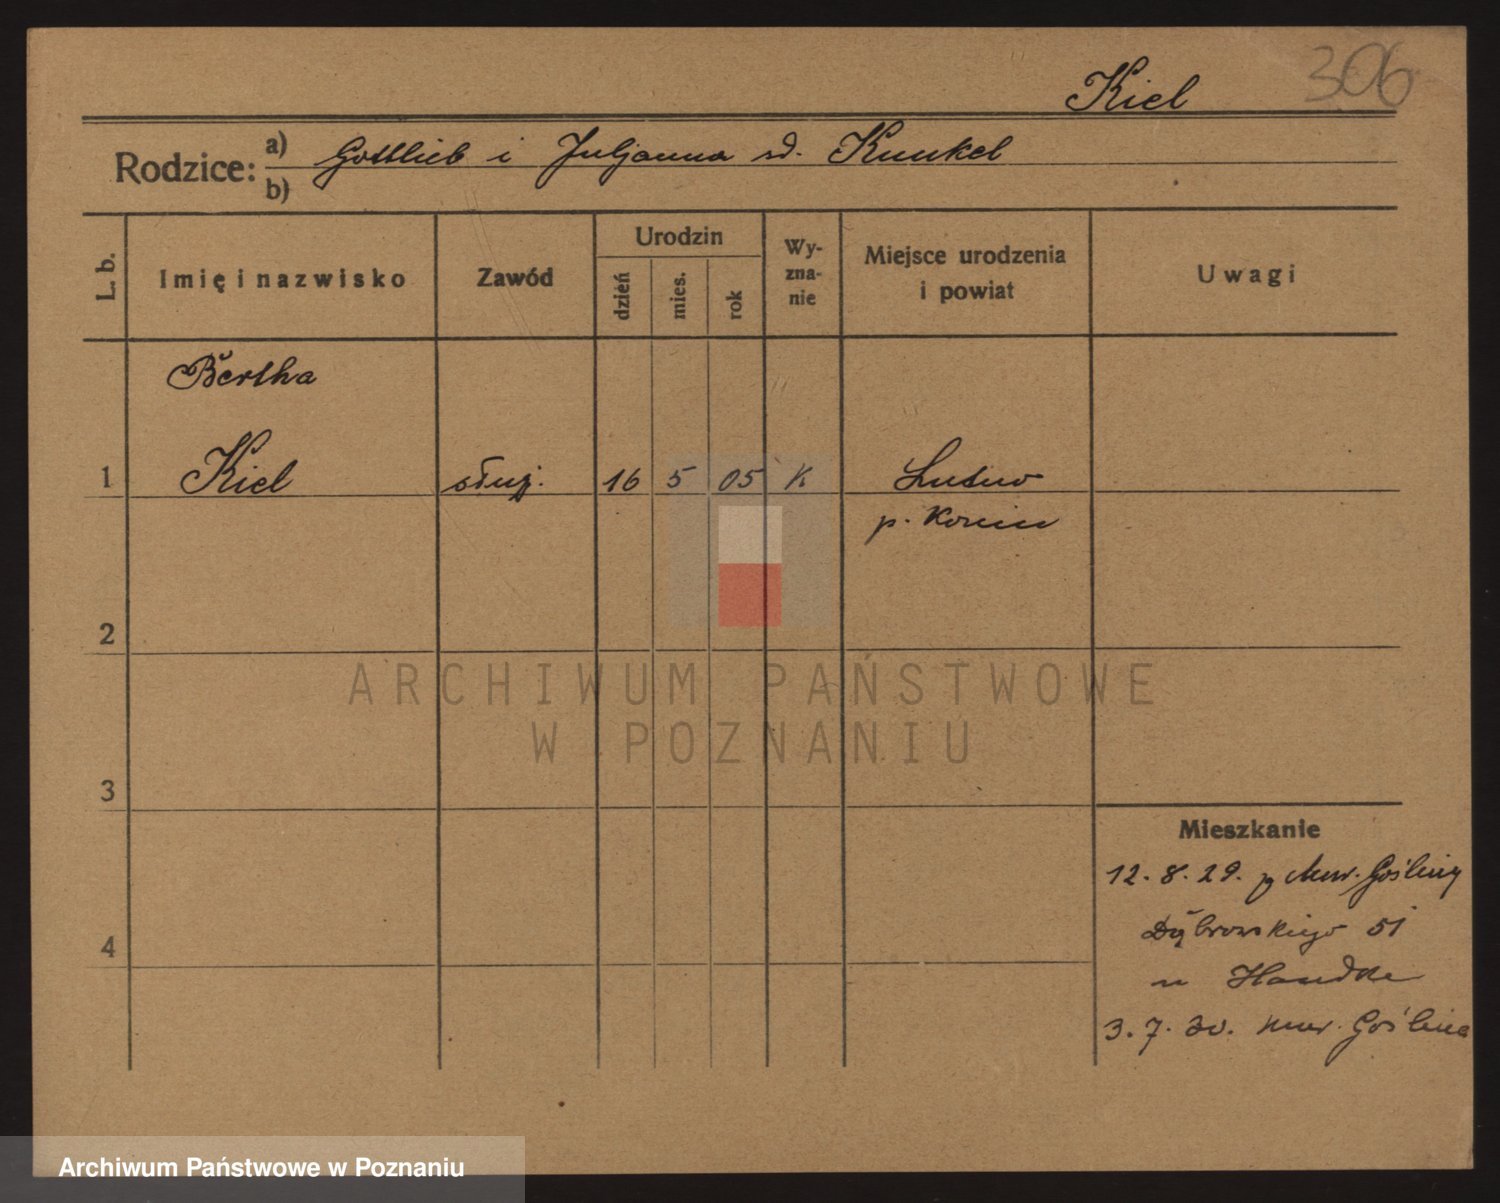 Kiel
306
Rodzice:
a) Gottlieb i Juljanna zd. Kunkel
b)
L. b.
Imię i nazwisko
Zawód
Urodzin
dzień
mies.
rok
Wy-
zna-
nie
Miejsce urodzenia
i powiat
Uwagi
Bertha
1 Kiel służ. 16 5 05 K
p. Konin
2
ARCHIWUM PAŃSTWOWE
W POZNANIU
3
Mieszkanie
12.8.29. z Mur. Gośliny
4
Dąbrowskiego 51
u Handke
3.7.30. Mur. Goślina
Archiwum Państwowe w Poznaniu